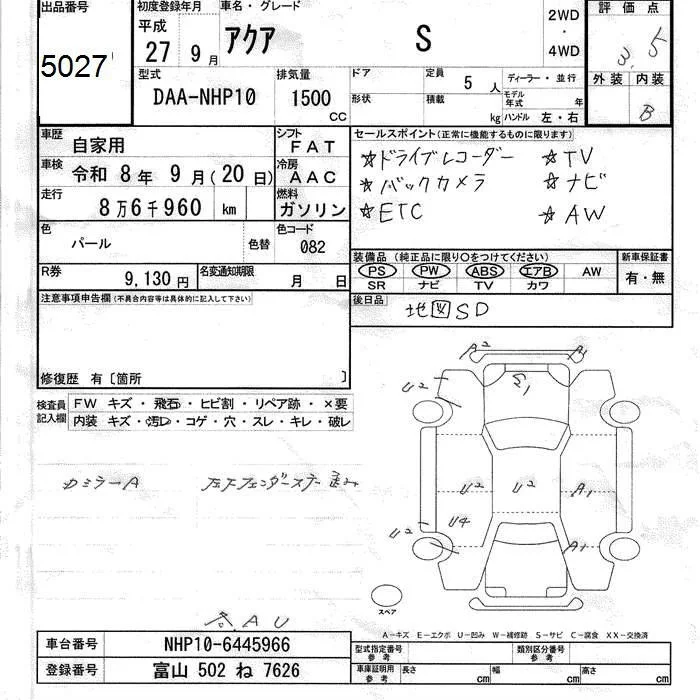 出品番号
5027
初度登録年月
平成
27 9 月
車名・グレード
アクア S
2WD
・
4WD
評価点
3.5
外装 内装
B
型式
DAA-NHP10
排気量
1500
CC
ドア
形状
定員
5 人
積載
kg
ディーラー・並行
モデル
年式 年
ハンドル 左・右
車歴
自家用
シフト
FAT
車検
令和 8 年 9 月(20 日)
冷房
AAC
走行
8 万 6 千 960 km
燃料
ガソリン
色
パール
色替
色コード
082
R券
9,130 円
名変通知期限
月 日
セールスポイント(正常に機能するものに限ります)
☆ドライブレコーダー ☆TV
☆バックカメラ ☆ナビ
☆ETC ☆AW
装備品 (純正品に限り○をつけてください)
PS PW ABS エアB AW
SR ナビ TV カワ
新車保証書
有・無
後日品
地図SD
注意事項申告欄(不具合内容等は具体的に記入して下さい)
修復歴 有〔箇所 〕
検査員
記入欄
FW キズ・飛石・ヒビ割・リペア跡・×要
内装 キズ・汚レ・コゲ・穴・スレ・キレ・破レ
カミラーA
各AU
A2
U2
U2
U2
A1
U2
U4
A1
スペア
A−キズ E−エクボ U−凹み W−補修跡 S−サビ C−腐食 XX−交換済
車台番号
NHP10-6445966
登録番号
富山 502 ね 7626
型式指定番号
参考
類別区分番号
参考
車庫証明用
参考
長さ cm
幅 cm
高さ cm